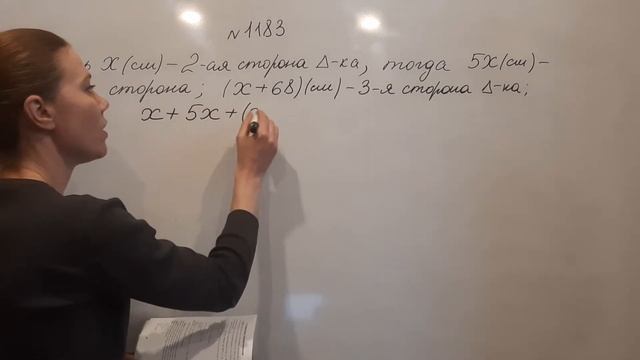 №1183
x(см) - 2-ая сторона Δ-ка, тогда 5x(см) -
сторона; (x+68)(см) - 3-я сторона Δ-ка;
x + 5x + (